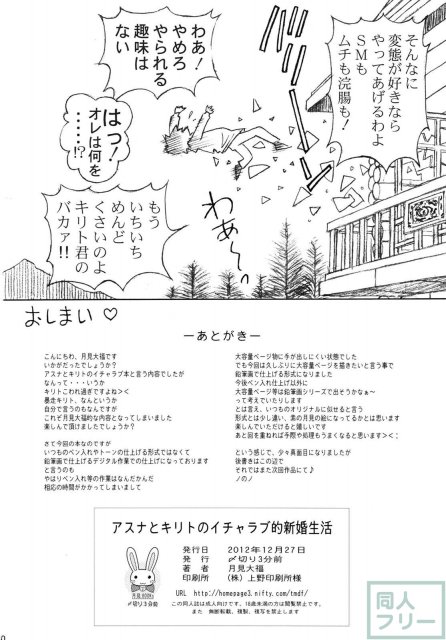 そんなに
変態が好きなら
やってあげるわよ
ＳＭも
ムチも浣腸も！
わあ！
やめろ
やられる
趣味は
ない
はっ！
オレは何を
・・・・・!?
もう
いちいち
めんど
くさいのよ
キリト君の
バカァ!!
わぁ〜っ
おしまい♡
―あとがき―
こんにちわ、月見大福です
いかがだったでしょうか？
アスナとキリトのイチャラブ本と言う内容でしたが
なんって・・・いうか
キリトこわれ過ぎですよね><
暴走キリト、なんというか
自分で言うのもなんですが
これぞ月見大福的な内容となってしまいました
楽しんで頂けましたでしょうか？
さて今回の本なのですが
いつものペン入れやトーンの仕上げる形式ではなくて
鉛筆画で仕上げるデジタル作業での仕上げになっております
と言うのも
やはりペン入れ等の作業はなんかんだ
相応の時間がかかってしまいまして
大容量ページ物に手が出しにくい状態でした
でも今回は久しぶりに大容量ページを描きたいと言う事で
鉛筆画で仕上げる形式になりました
今後ペン入れ仕上げ以外に
大容量ページ等は鉛筆画シリーズで出そうかなぁ〜
って考えていたりします
とは言え、いつものオリジナルに似せると言う
形式とは少し違い、素の月見の絵になってるかとは思います
楽しんでいただけると嬉しいです
あと回を重ねれば手際や処理もうまくなると思います><；
という感じで、少々真面目になりましたが
後書きはこの辺で
それではまた次回作品にて♪
ノのノ
アスナとキリトのイチャラブ的新婚生活
発行日 2012年12月27日
発行 〆切り3分前
著者 月見大福
印刷所 （株）上野印刷所様
URL http://homepage3.nifty.com/tmdf/
この同人誌は成人向けです、18歳未満の方は閲覧禁止です。
また　無断転載、複製、複写を禁止します
〆切り3分前
同人
フリー
0